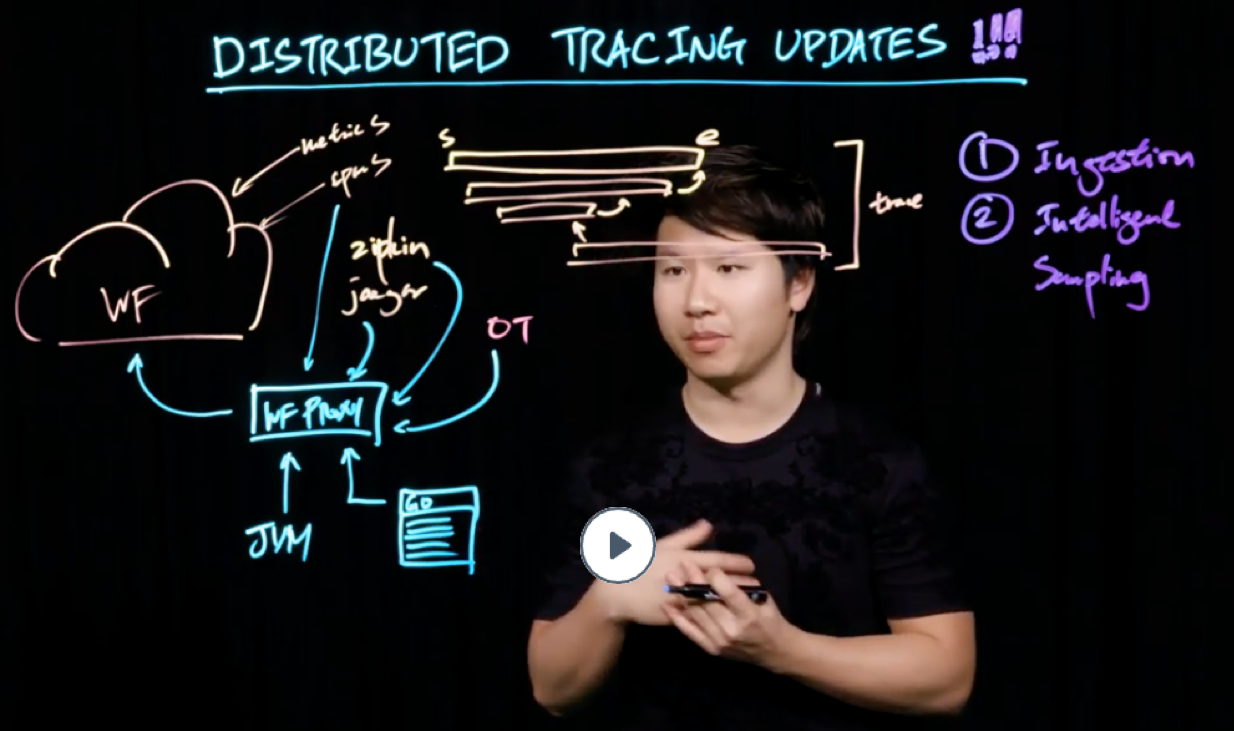 DISTRIBUTED TRACING UPDATES !!!
metrics
spans
WF
zipkin
jaeger
OT
WF Proxy
JVM
GO
s
e
trace
1 Ingestion
2 Intelligent
Sampling